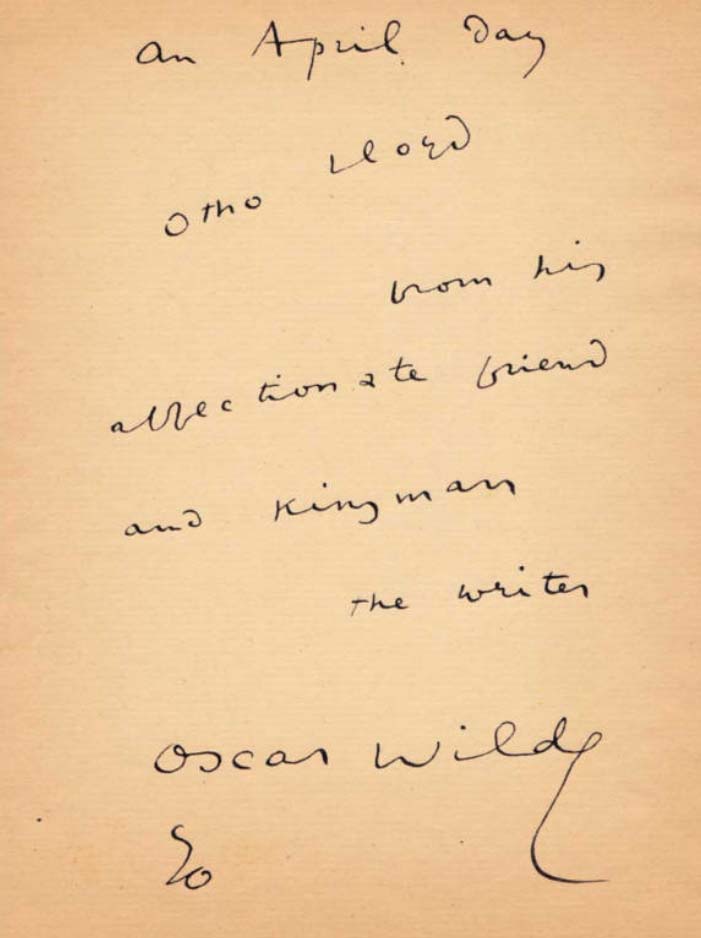 an April Day
Otho Lloyd
from his
affectionate friend
and kinsman
the writer
Oscar Wilde
90